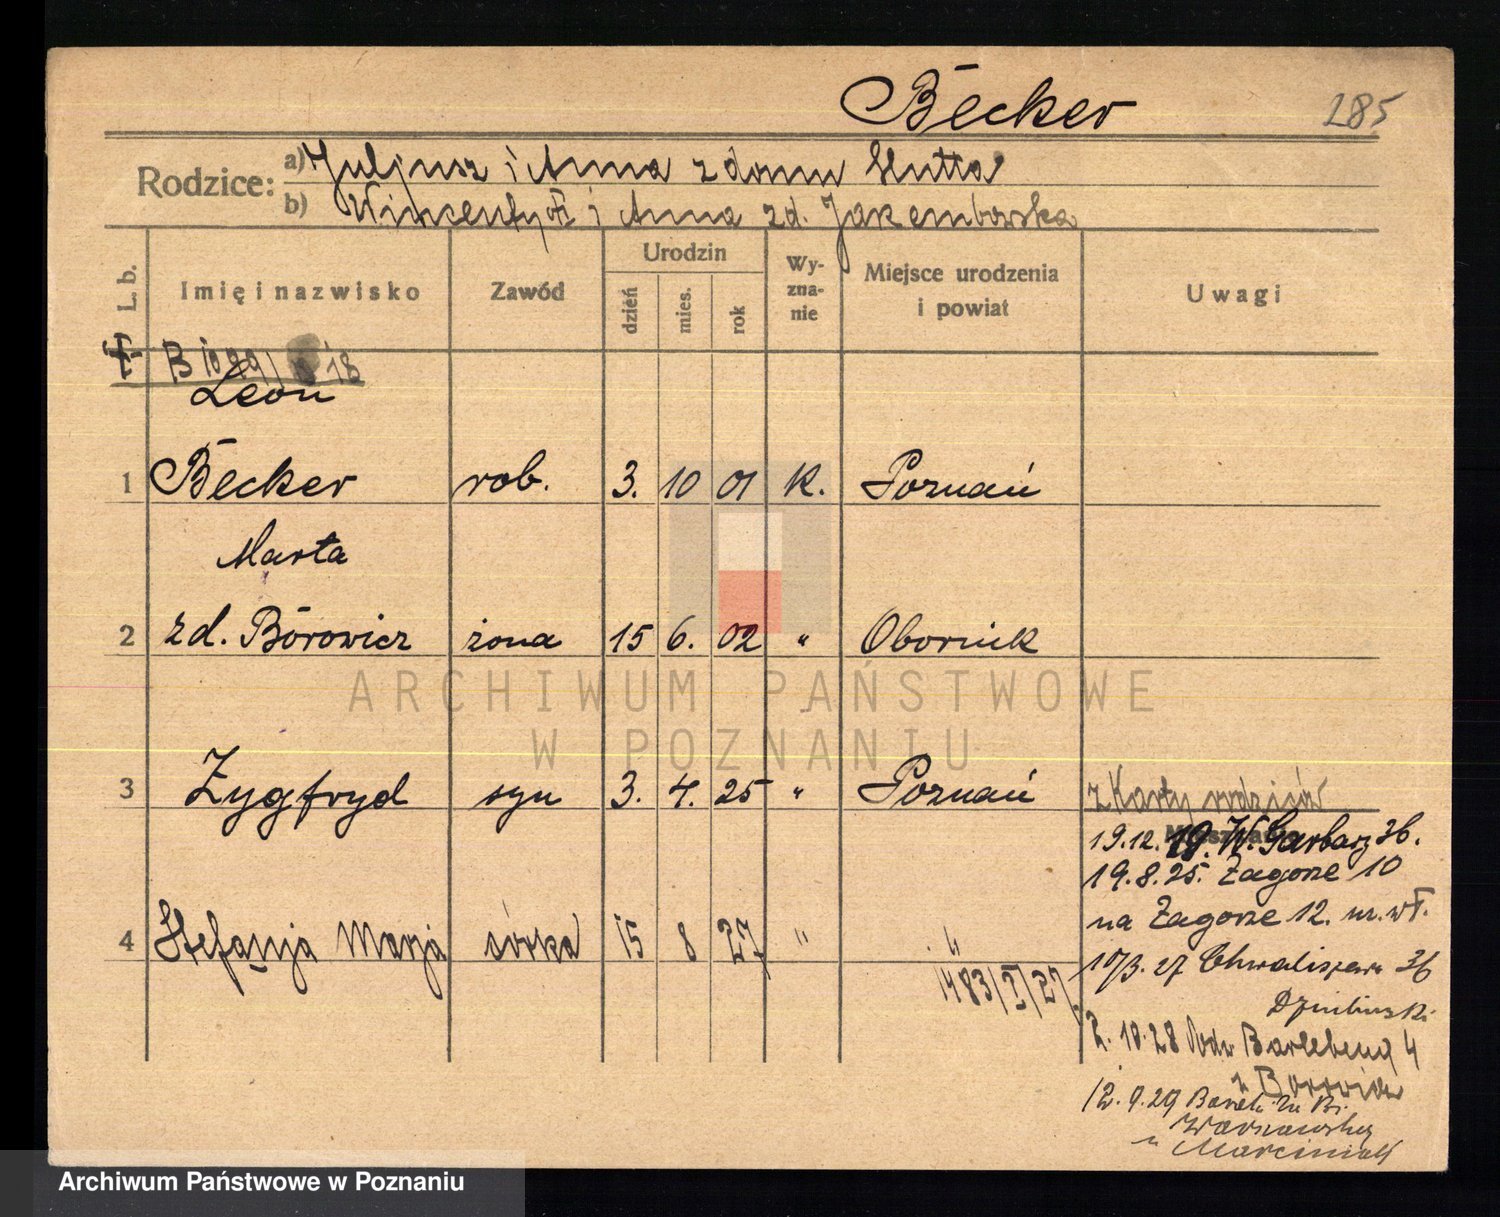 Becker 285
Rodzice: a) Juljusz i Anna z domu Hutta
b) Wincenty i Anna zd. Jakembowska
L. b. Imię i nazwisko Zawód Urodzin dzień mies. rok Wyznanie Miejsce urodzenia i powiat Uwagi
Leon
1 Becker rob. 3. 10 01 K. Poznań
Marta
2 zd. Borowicz żona 15 6. 02 " Obornik
ARCHIWUM PAŃSTWOWE
W POZNANIU
3 Zygfryd syn 3. 4. 25 " Poznań z Karty rodziców
19.12.19. W. Garbary 36.
19.8.25. Zagorze 10
na Zagorze 12.
4 Stefanja Marja córka 15 8 27 " "
10/3.27 Chwaliszewo 36
1483/I/27
2. 10.28 Bartebena 4
12.9.29
Warszawskiej
u Marciniak
Archiwum Państwowe w Poznaniu